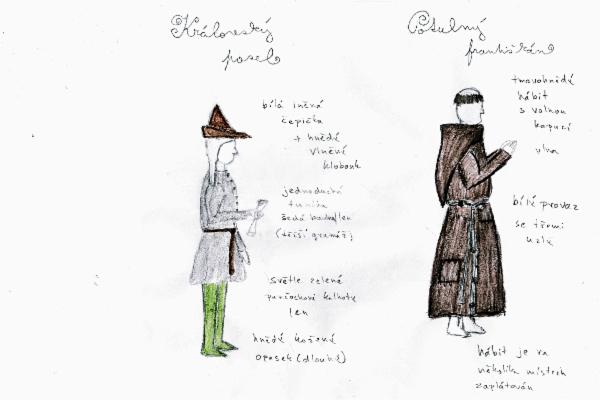 Královský
posel
bílá lněná
čepička
+ hnědé
vlněné
klobouk
jednoduchá
tunika
šedá barva, len
(těžší gramáž)
světle zelené
punčochové kalhoty
len
hnědé kožené
opasek (dlouhé)
Potulný
františkán
tmavohnědý
hábit
s volnou
kapucí
vlna
bílé provaz
se třemi
uzly
hábit je na
několika místech
zaplátován